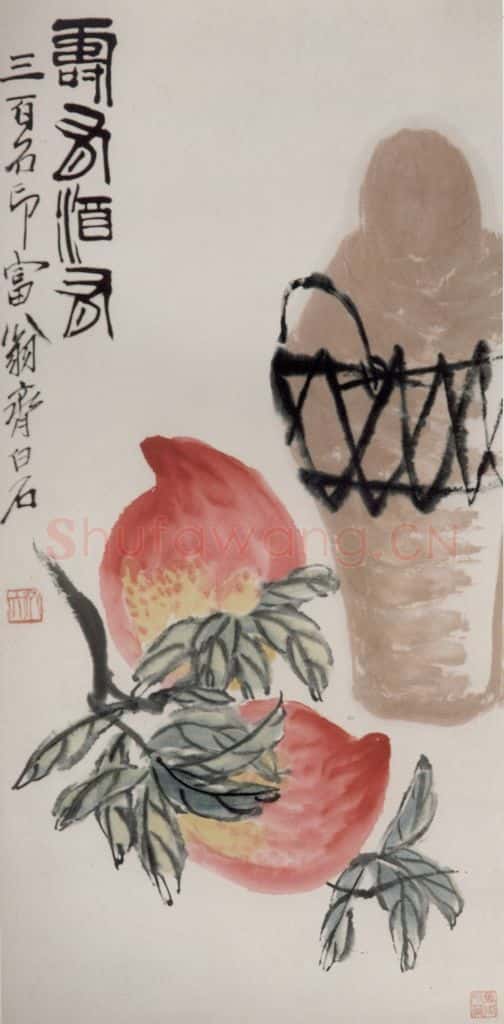 壽有酒有
三百石印富翁齊白石
Shufawang.CN